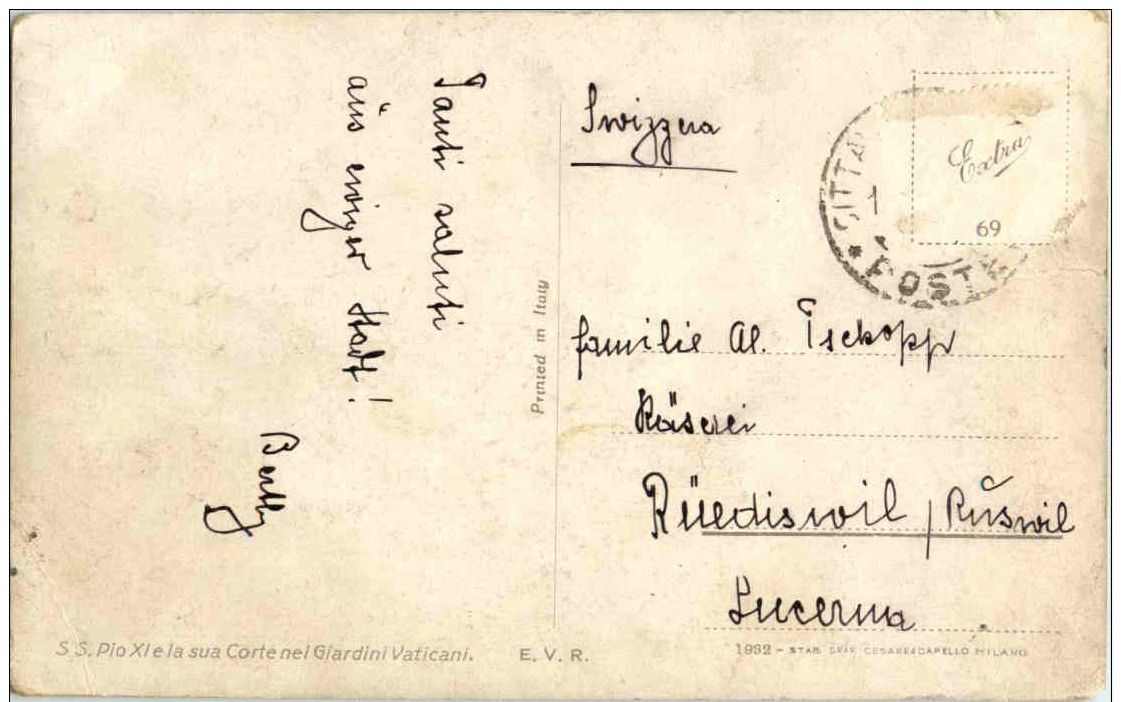 Tanti saluti
aus ewiger Stadt!
Berthy
Printed in Italy
Svizzera
CITTA
1
POST
Extra
69
Familie Al. Tschopp
Käserei
Rüediswil / Rŭswil
Lucerna
S. S. Pio XI e la sua Corte nei Giardini Vaticani.
E. V. R.
1932 - STAB. GRAF. CESARE CAPELLO MILANO